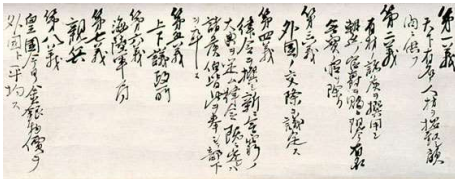 第一義
天下有名ノ人材ヲ招致シ顧
問ニ供フ
第二義
有材ノ諸侯ヲ撰用シ
朝廷ノ官爵ヲ賜ヒ現今有名
無実ノ官ヲ除ク
第三義
外国ノ交際ヲ議定ス
第四義
律令ヲ撰シ新ニ無窮ノ
大典ヲ定ム律令既ニ定レハ
諸侯伯皆此ヲ奉シテ部下
ヲ率ス
第五義
上下議政所
第六義
海陸軍局
第七義
親兵
第八義
皇国今日ノ金銀物價ヲ
外国ト平均ス